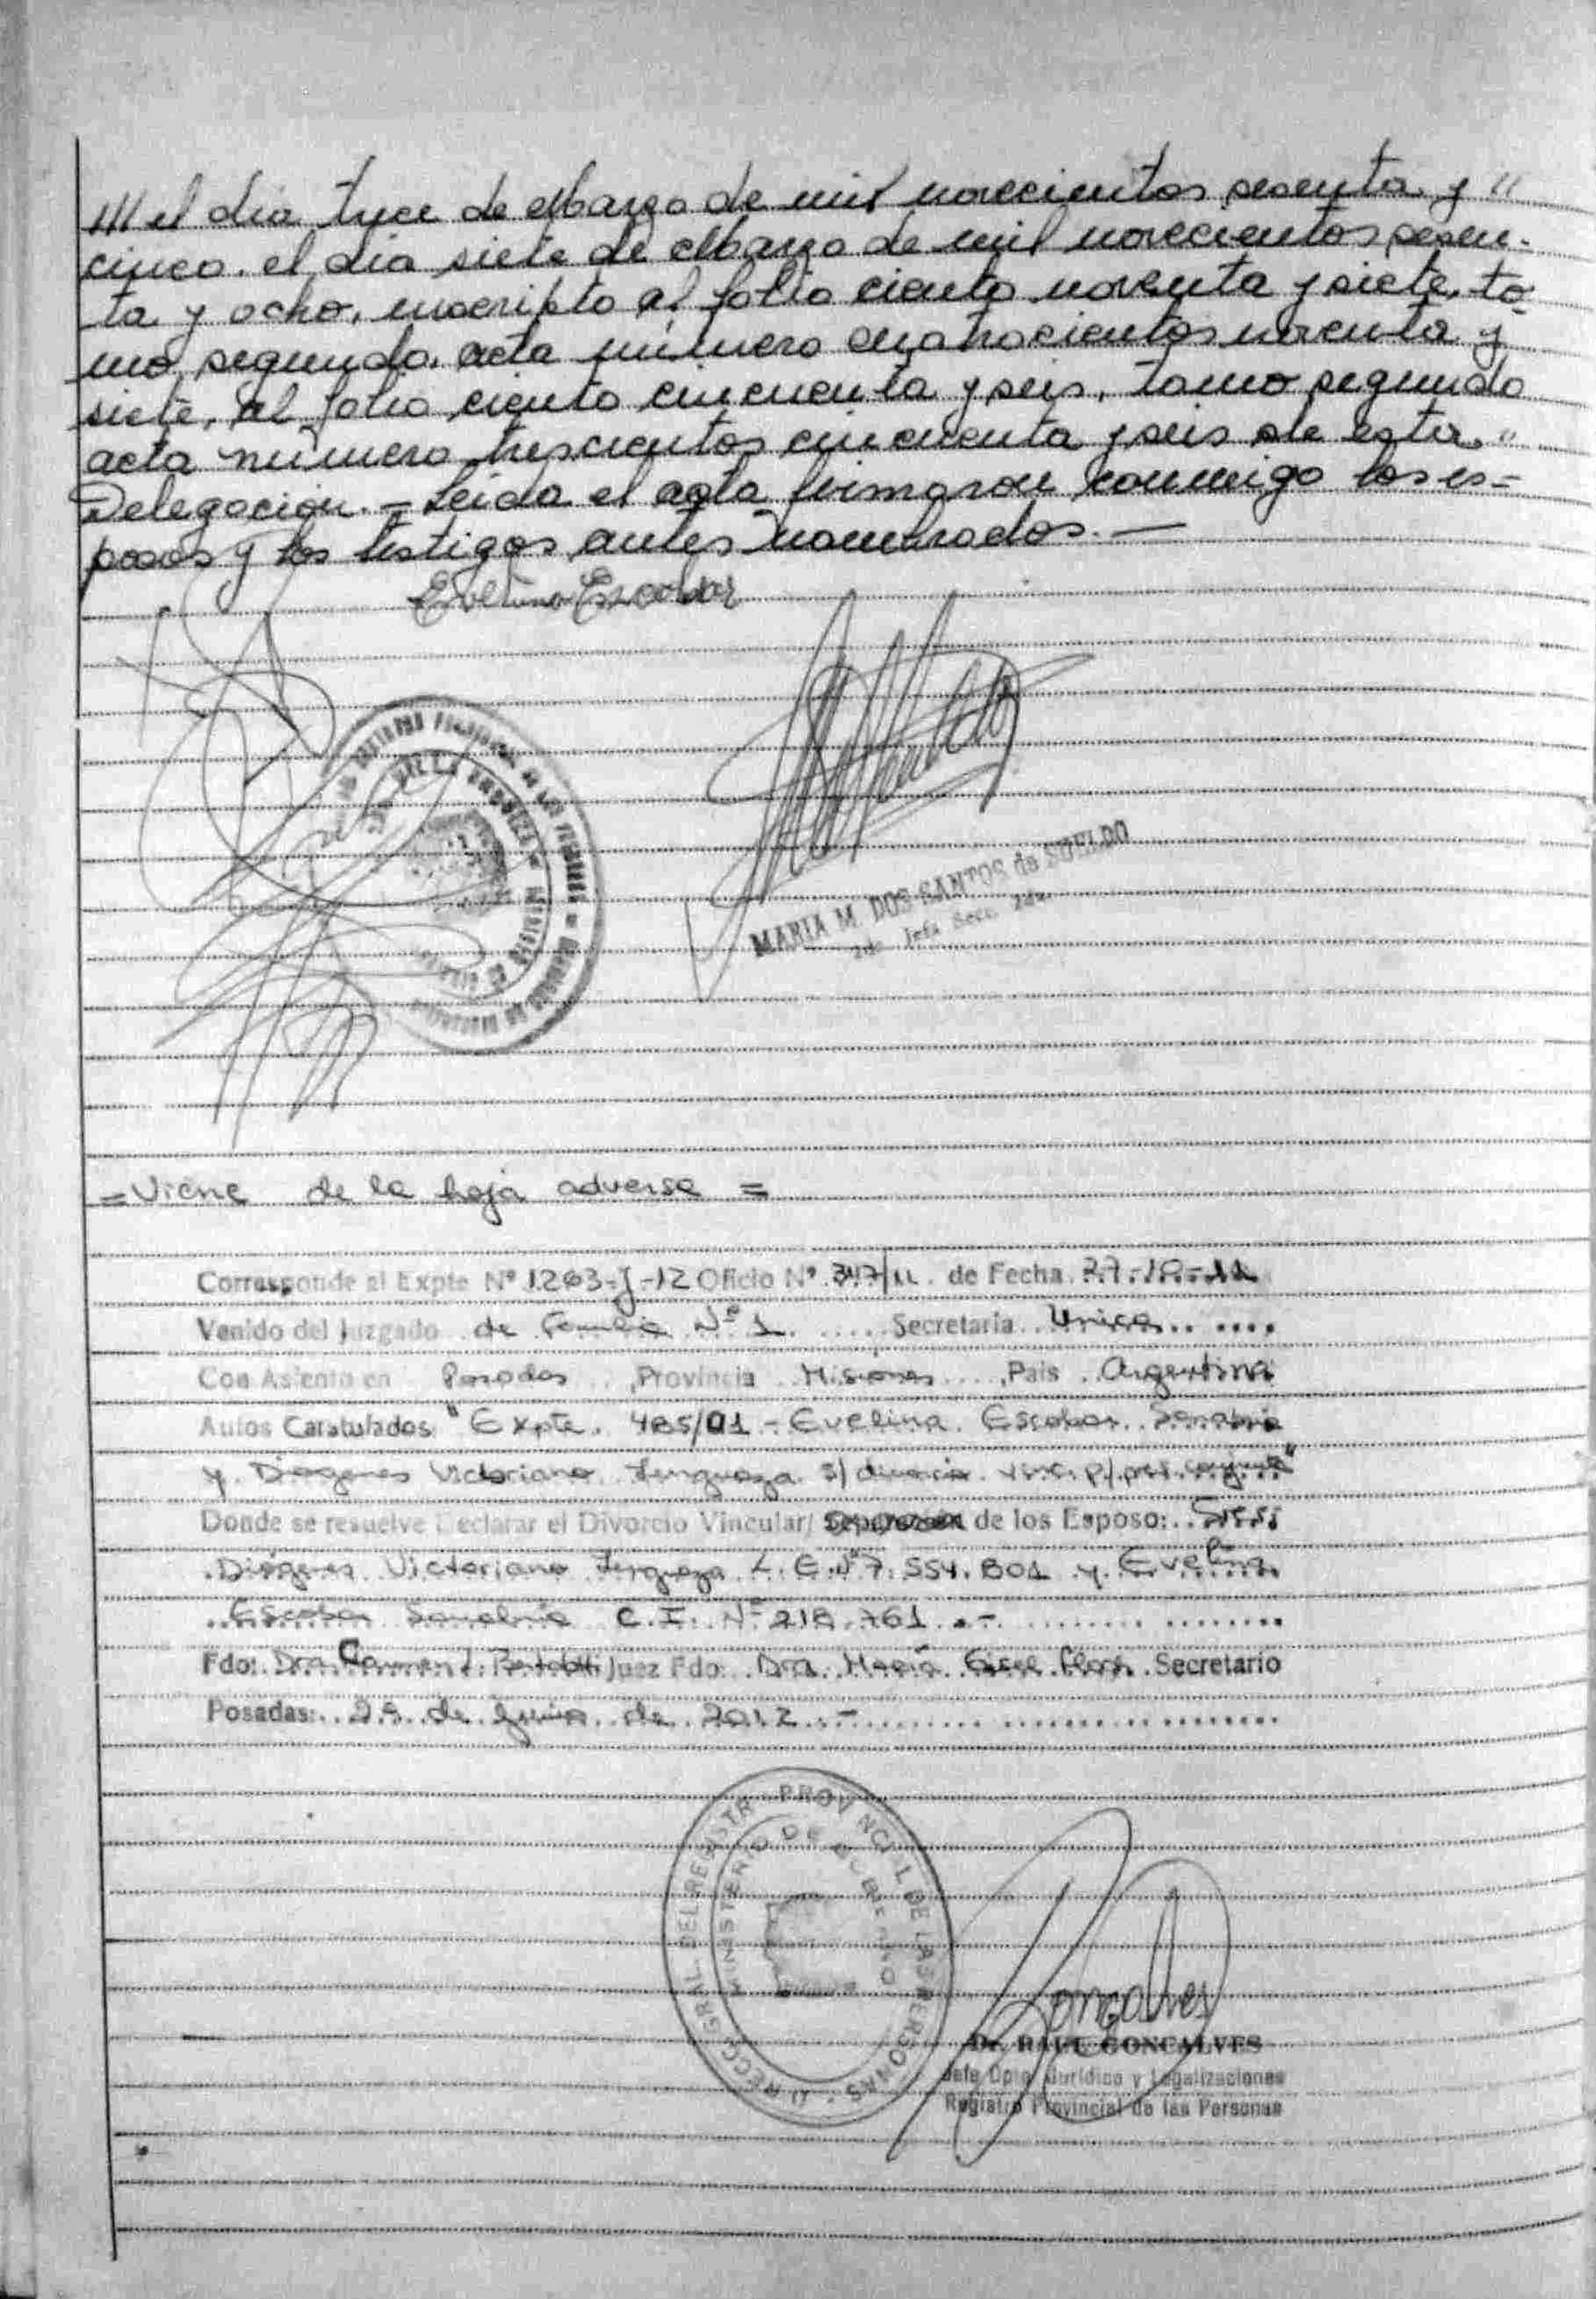 /// el día trece de Marzo de mil novecientos sesenta y "
cinco. el día siete de Marzo de mil novecientos sesen-
ta y ocho, inscripto al folio ciento noventa y siete, to-
mo segundo, acta número cuatrocientos noventa y
siete, al folio ciento cincuenta y seis, tomo segundo
acta número trescientos cincuenta y seis de esta "
Delegación. = Leída el acta firmaron conmigo los es=
posos y los testigos antes nombrados. —
Evelina Escobar
MARIA M. DOS SANTOS de SUELDO
2da Jefa Secc.
= Viene de la hoja adversa =
Corresponde al Expte Nº 1263-J-12 Oficio Nº 347/11 de Fecha 27-10-11
Venido del Juzgado de Familia Nº 1 Secretaria Unica
Con Asiento en Posadas, Provincia Misiones, Pais Argentina
Autos Caratulados "Expte. 485/01 - Evelina Escobar Sanabria
y Diogenes Victoriano s/ divorcio vinc. p/ pres. conjunta"
Donde se resuelve Declarar el Divorcio Vincular/ Separacion de los Esposo: Sres:
Diógenes Victoriano L.E. Nº 7.554.801 y Evelina
Escobar Sanabria C.I. Nº 218.761.-
Fdo: Dra Carmen Juez Fdo: Dra. María Gisel Flores Secretario
Posadas: 25 de Junio de 2012.-
DIRECC. GRAL. DEL REGISTR. PROVINCIAL DE LAS PERSONAS
MINISTERIO DE GOBIERNO
Goncalves
Dr. RAUL GONCALVES
Jefe Dpto. Jurídico y Legalizaciones
Registro Provincial de las Personas